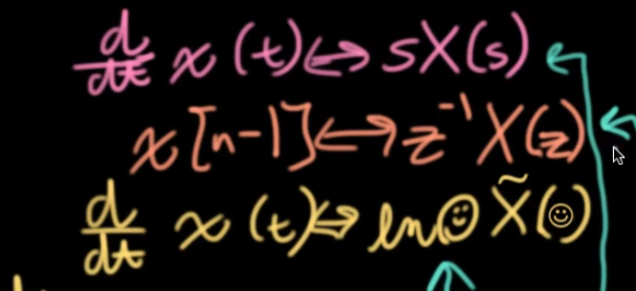 d/dt x(t) ↔ sX(s)
x[n-1] ↔ z⁻¹X(z)
d/dt x(t) ↔ ln☺ X̃(☺)